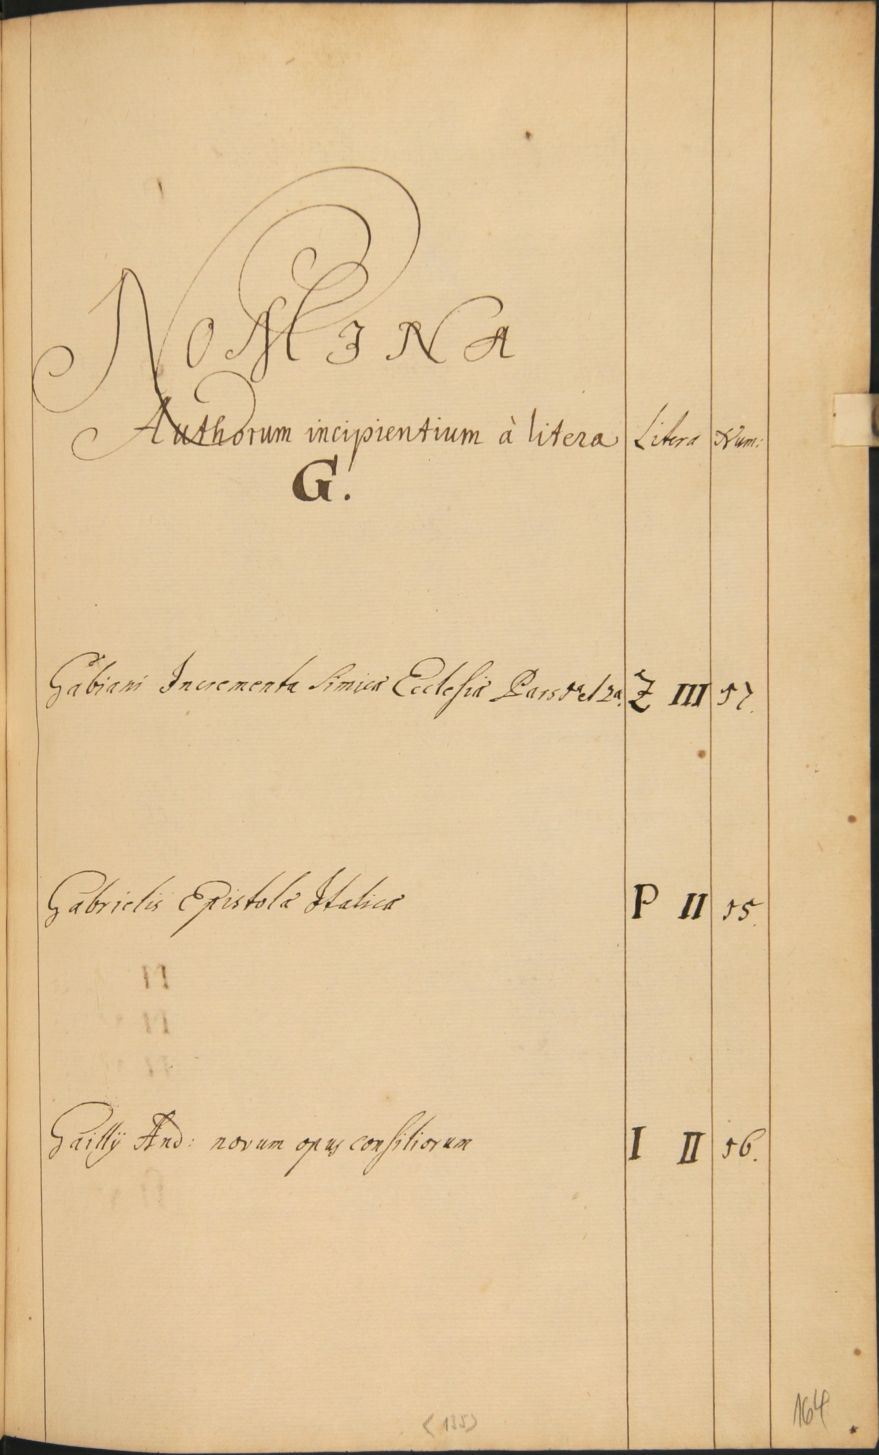 NOMINA
Authorum incipientium à litera Litera Num:
G.
Gabiani Incrementa Sinicæ Ecclesiæ Pars 1a et 2a. Z III 17.
Gabrielis Epistolæ Italicæ P II 15.
Gailly And: novum opus consiliorum I II 16.
(135)
164